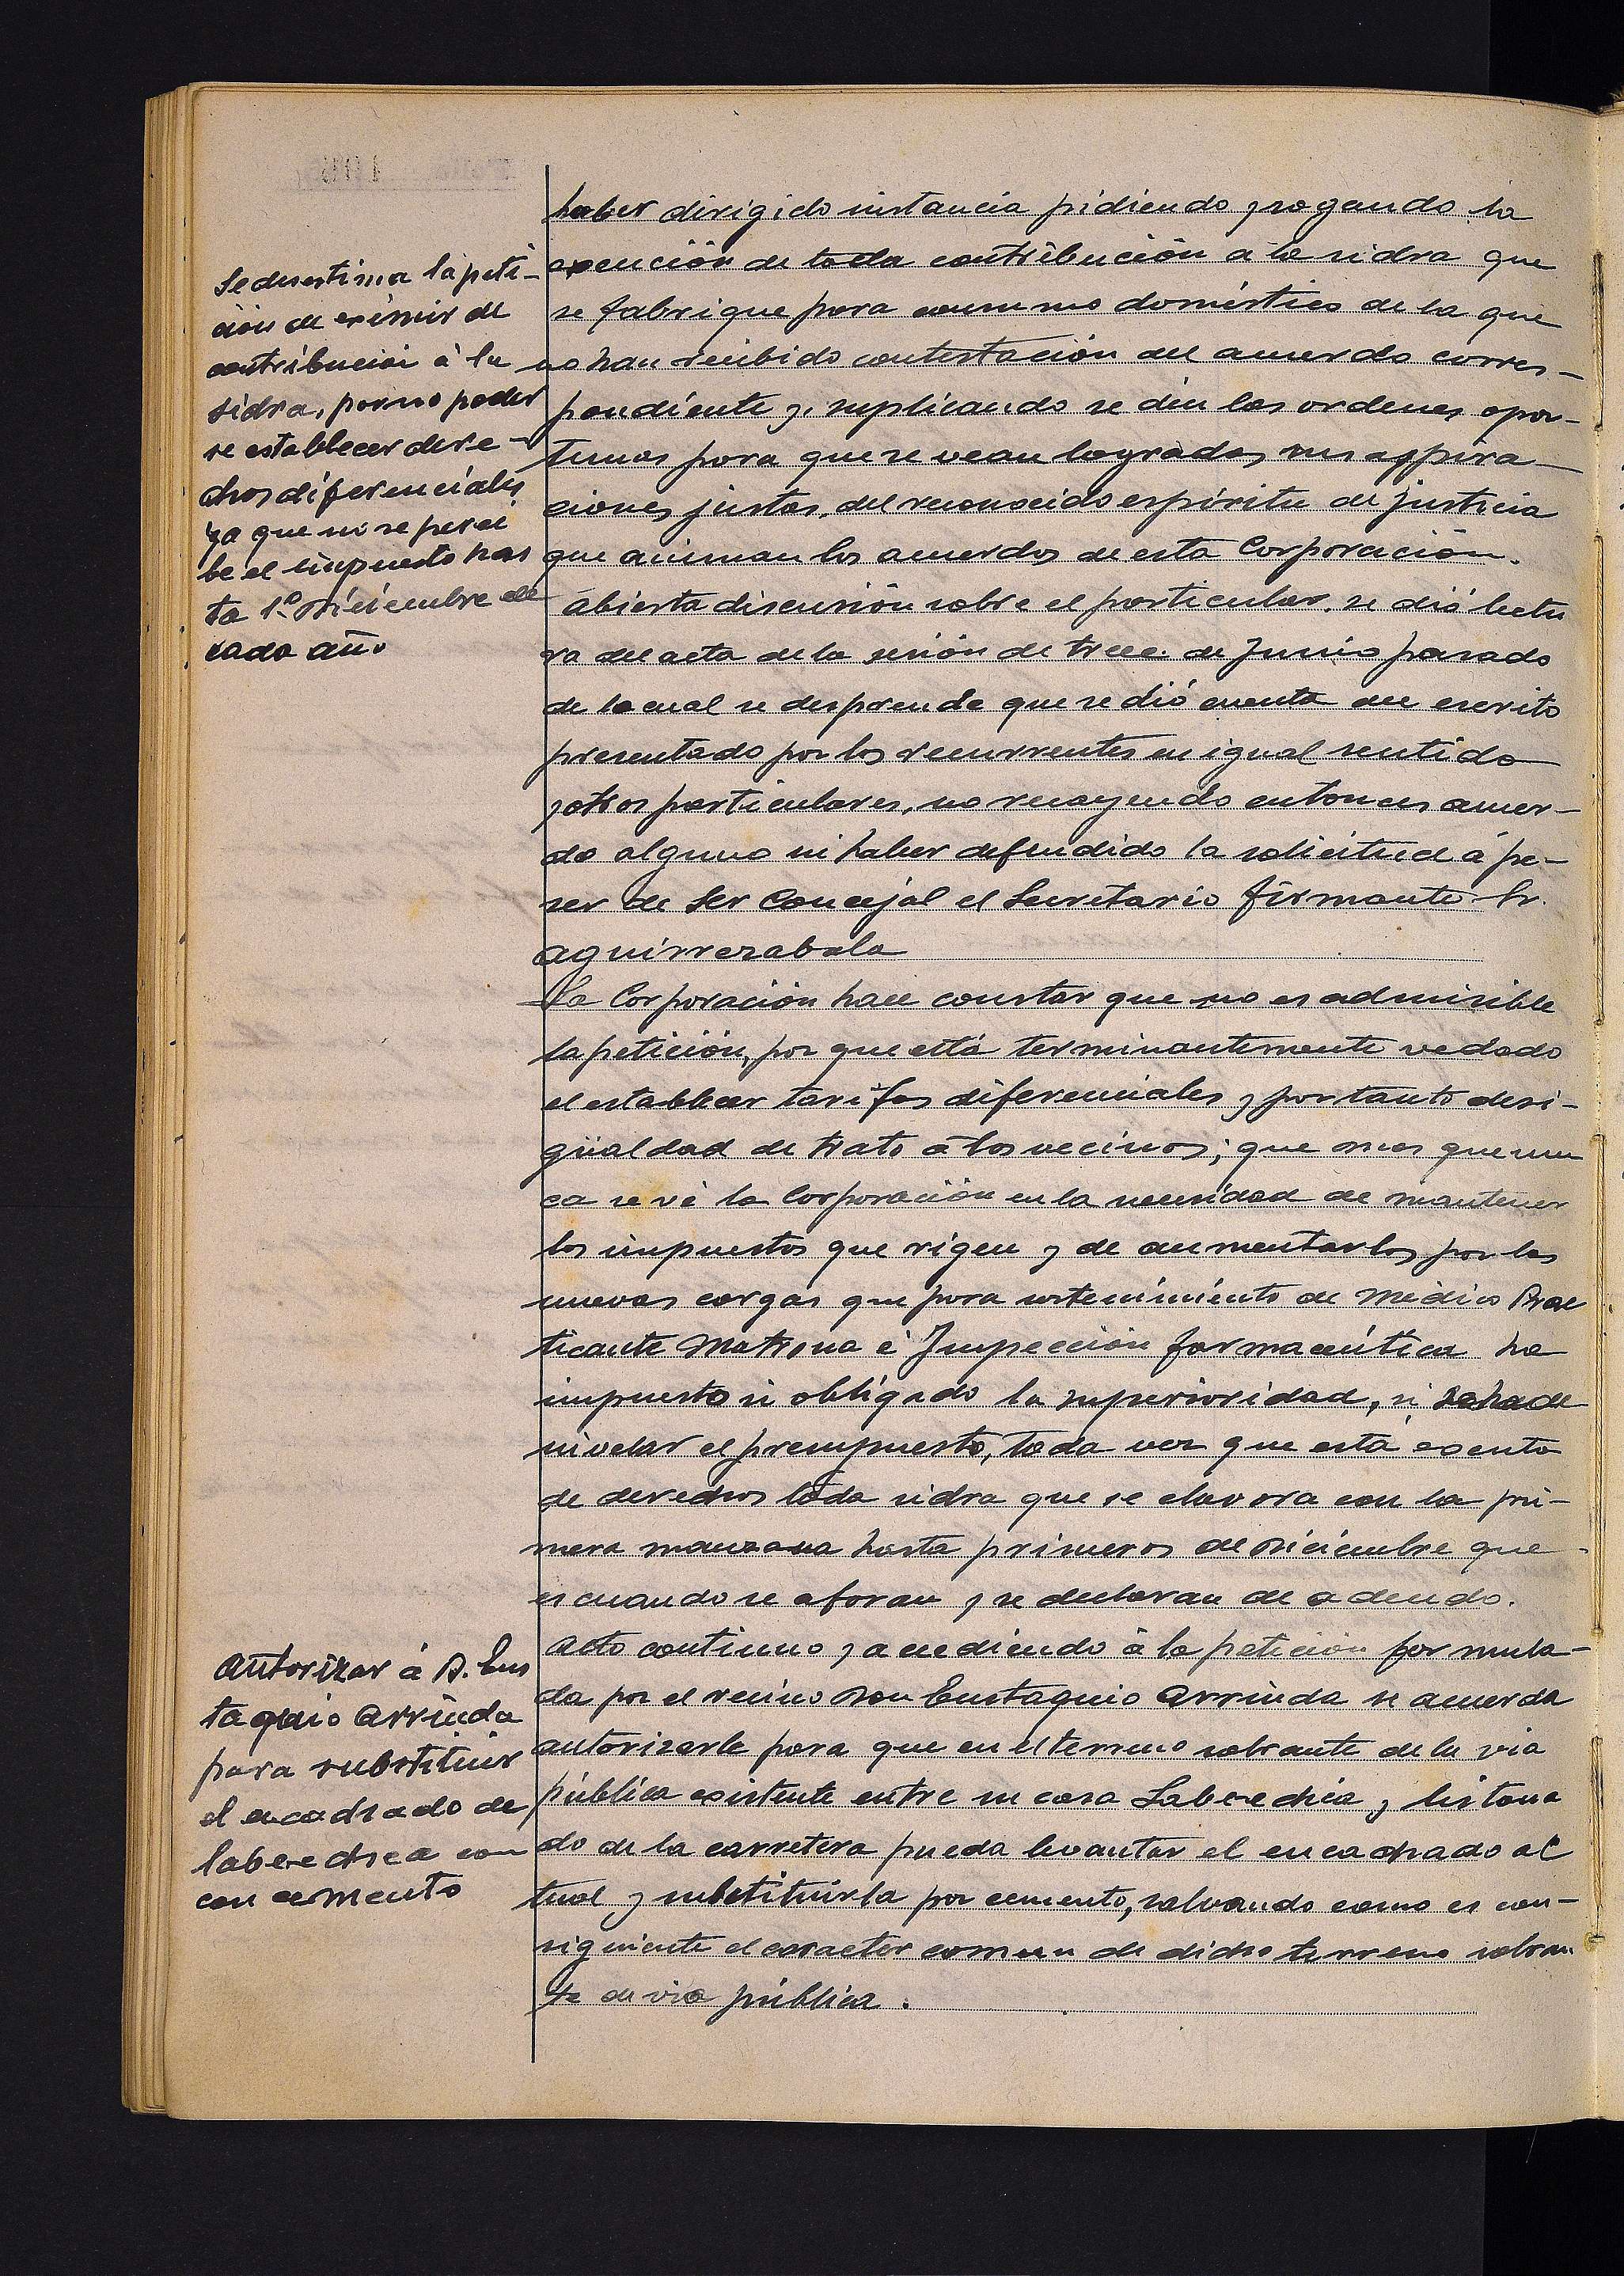 Se desestima la peti-
ción de eximir de
contribución á la
sidra, por no poder
se establecer dere-
chos diferenciales
ya que no se perci
be el impuesto has
ta 1.º Diciembre de
cada año
haber dirigido instancia pidiendo y rogando la
exención de toda contribución a la sidra que
se fabrique para consumo doméstico de la que
no han recibido contestación del acuerdo corres-
pondiente y, suplicando se den las ordenes opor-
tunas para que se vean logradas sus aspira-
ciones justas, del reconocido espíritu de justicia
que animan los acuerdos de esta Corporación.
Abierta discusión sobre el particular, se dió lectu
ra del acta de la sesión de trece de Junio pasado
de la cual se desprende que se dió cuenta del escrito
presentado por los recurrentes en igual sentido
y otros particulares, no recayendo entonces acuer-
do alguno ni haber defendido la solicitud á pe-
ser de ser Concejal el Secretario firmante Sr.
Aguirrezabala
La Corporación hace constar que no es admisible
la petición, por que está terminantemente vedado
el establecer tarifas diferenciales y por tanto desi-
gualdad de trato á los vecinos; que mas que nun
ca se vé la Corporación en la necesidad de mantener
los impuestos que rigen y de aumentarlos por las
nuevas cargas que para sostenimiento de Médico Prac
ticante Matrona é Inspección farmacéutica ha
impuesto ú obligado la superioridad, si se ha de
nivelar el presupuesto, toda vez que está exenta
de derechos toda sidra que se elavora con la pri-
mera manzana hasta primeros de Diciembre que
es cuando se aforan y se declaran de adeudo.
Autorizar á D. Eus
taquio Arrinda
para substituir
el encachado de
Laberechea con
con cemento
Acto continuo y accediendo á la petición formula-
da por el vecino Don Eustaquio Arrinda se acuerda
autorizarle para que en el terreno sobrante de la via
pública existente entre su casa Laberechea y listona
do de la carretera pueda levantar el encachado ac
tual y substituirla por cemento, salvando como es con-
siguiente el caracter comun de dicho terreno sobran
te de via pública.